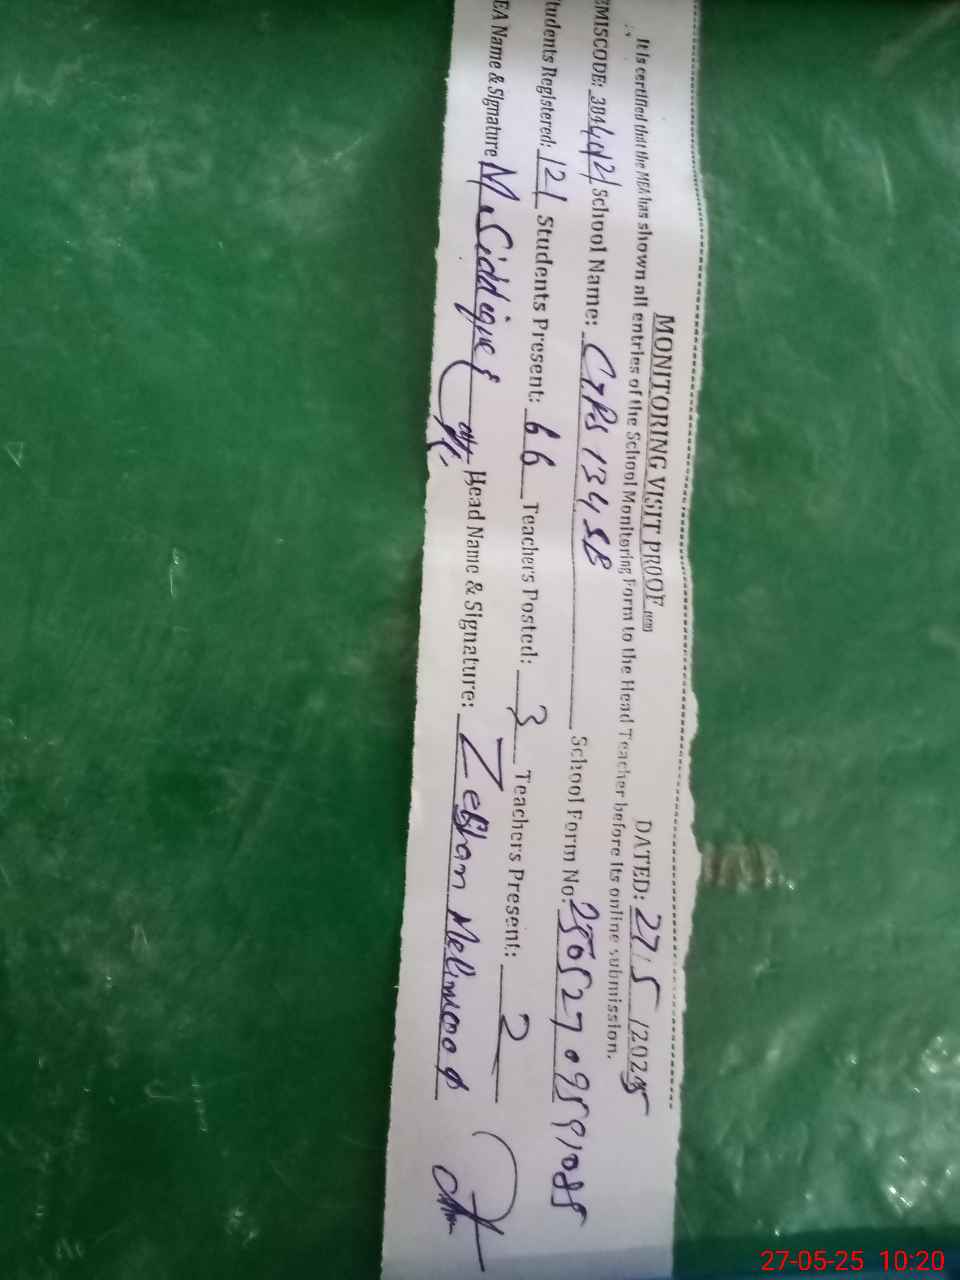 MONITORING VISIT PROOF
DATED: 27/5/2025
It is certified that the MEA has shown all entries of the School Monitoring Form to the Head Teacher before its online submission.
EMISCODE: School Name: GPS 134 SB School Form No:
Students Registered: 121 Students Present: 66 Teachers Posted: 3 Teachers Present: 2
EA Name & Signature M. Siddique Head Name & Signature: Zeshan Mehmood
27-05-25 10:20